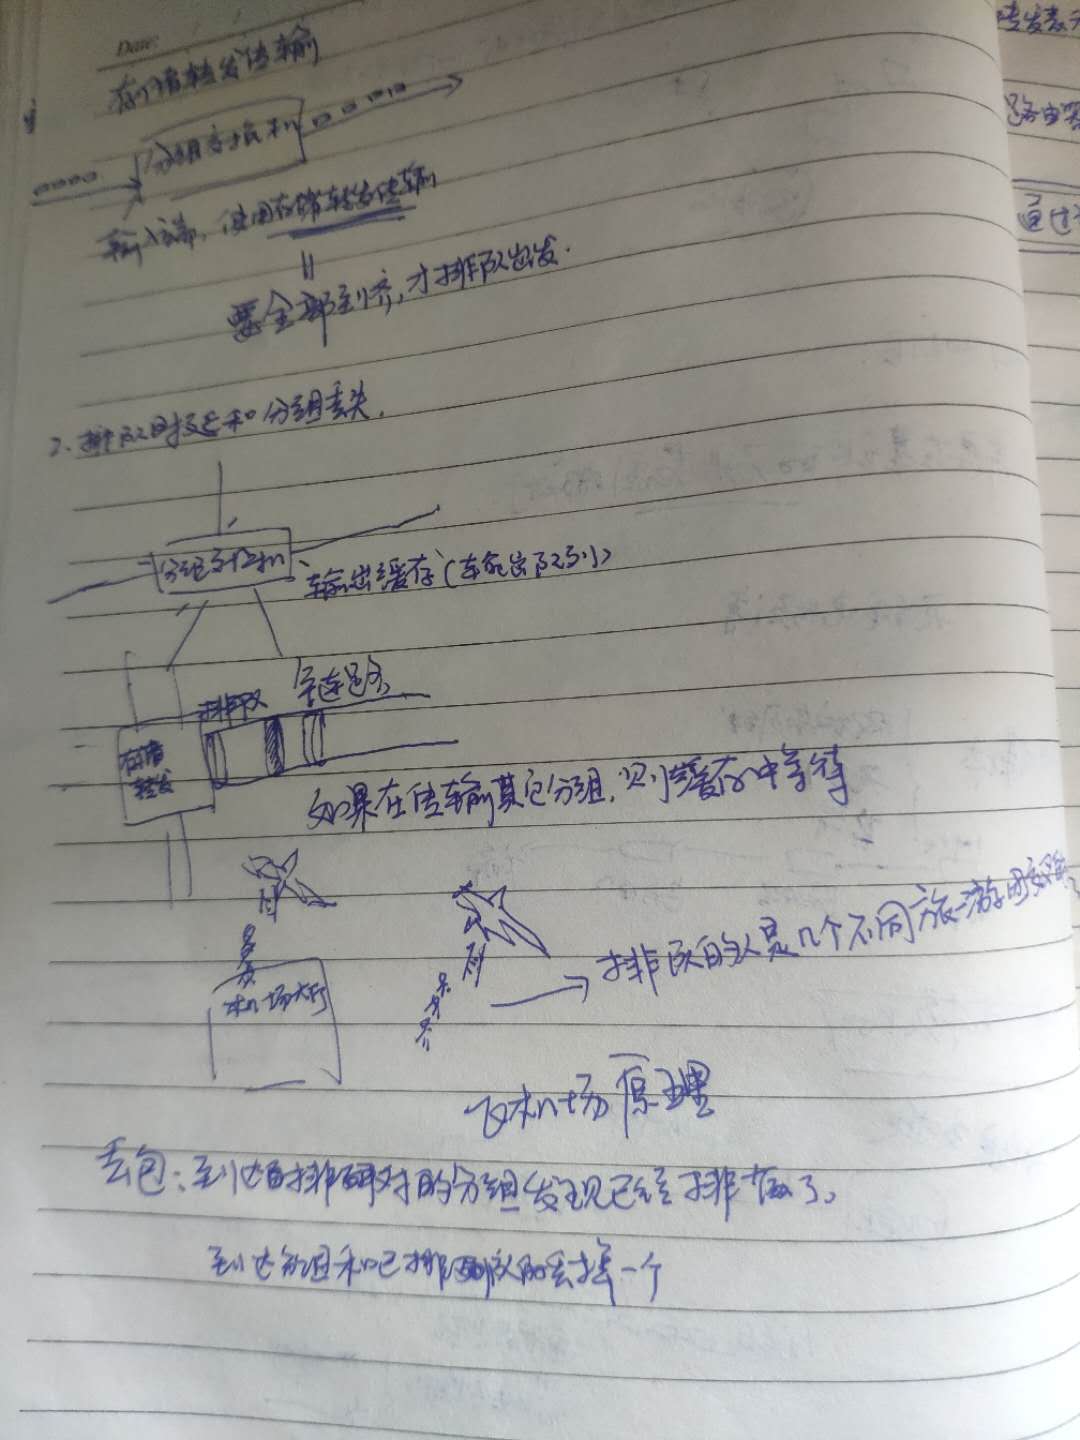 Date:
存储转发传输
分组交换机
输入端,使用存储转发传输
要全部到齐,才排队出发.
2、排队时延和分组丢失.
分组交换机
输出缓存(输出队列)
排队
存储
转发
如果在传输其它分组,则缓存中等待
机场大厅
排队的人是几个不同旅游团
飞机场原理
丢包:到达排队时的分组发现已经排满了。
到达分组和已排队的丢掉一个
转发表
路由器
通过